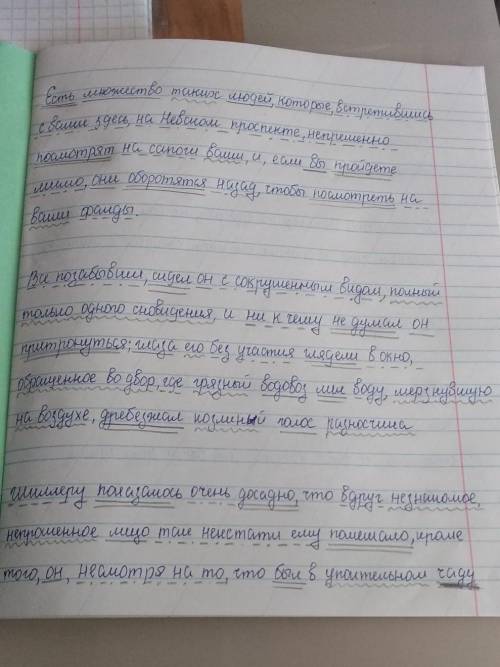 Есть множество таких людей, которые, встретившись
с вами здесь, на Невском проспекте, непременно
посмотрят на сапоги ваши, и, если вы пройдете
мимо, они оборотятся назад, чтобы посмотреть на
ваши фалды.
позабывши, сидел он с сокрушенным видом, полный
только одного сновидения, и ни к чему не думал он
притронуться; глаза его без участия глядели в окно,
обращенное во двор, где грязный водовоз лил воду, мерзнувшую
на воздухе, дребезжал козлиный голос разносчика
Шиллеру показалось очень досадно, что вдруг незнакомое,
непрошенное лицо так некстати ему помешало, кроме
того, он, несмотря на то, что был в упоительном чаду